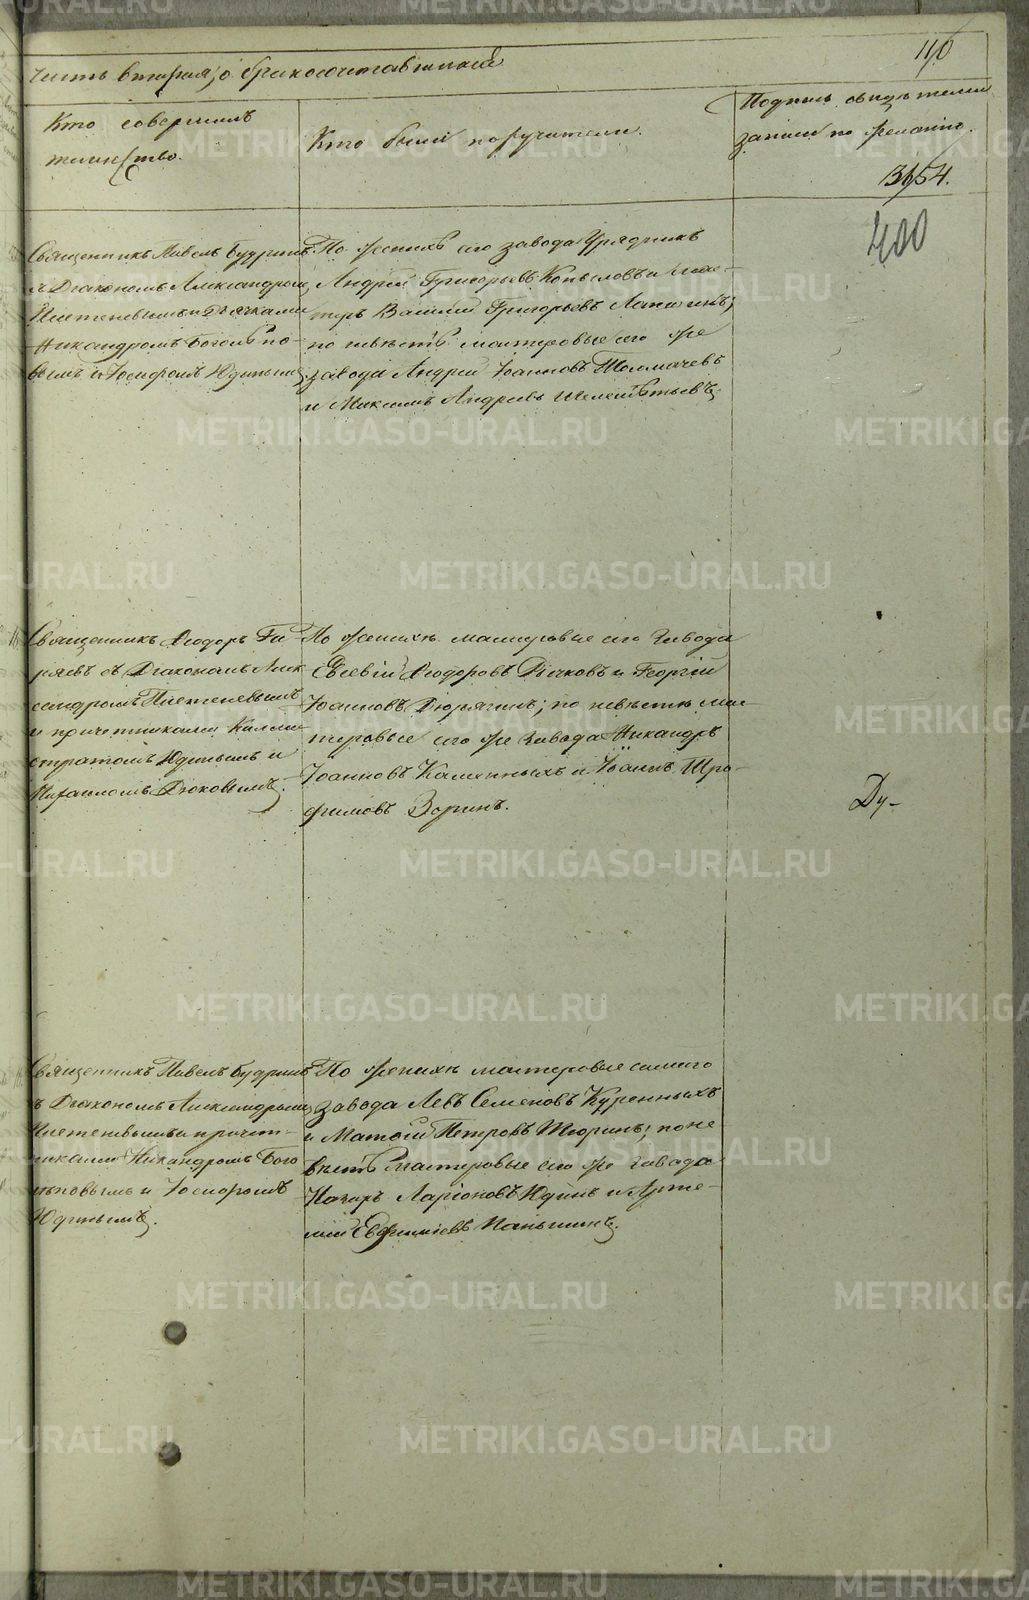 110
часть вторая, о бракосочетавшихся
Кто совершилъ
таинство.
Кто были поручители.
Подпись свидѣтелей
записи по желанію.
400
Священникъ Павелъ Будринъ
съ Діакономъ Александромъ
и Дьячками
Никандромъ Боголѣпо-
вымъ и Іосифомъ Юдинымъ
По женихѣ сего завода Урядникъ
Андрей Григорьевъ Копыловъ и мас-
теръ Василій Григорьевъ
по невѣстѣ мастеровые сего же
завода Андрей Іоанновъ Толмачевъ
и Максимъ Андреевъ
Священникъ Ѳеодоръ Ги
ряевъ съ Діакономъ Алек
сандромъ Плетеневымъ
и причетниками Калли
стратомъ Юдинымъ и
Михаиломъ Дюковымъ.
По женихѣ мастеровые сего завода
Евсевій Ѳеодоровъ и Георгій
Іоанновъ Дюрягинъ; по невѣстѣ мас-
теровые сего же завода Никандръ
Іоанновъ Каменныхъ и Іоаннъ Тро-
фимовъ Зоринъ.
Ду-
Священникъ Павелъ Будринъ
съ Діакономъ Александромъ
Плетеневымъ и причет-
никами Никандромъ Бого
лѣповымъ и Іосифомъ
Юдинымъ.
По женихѣ мастеровые
завода Левъ Семеновъ Куренныхъ
и Матѳій Петровъ Тюринъ; по не
вѣстѣ мастеровые сего же завода
Назаръ Ларіоновъ Юдинъ и Арте-
мій Евфиміевъ Паньшинъ.
METRIKI.GASO-URAL.RU